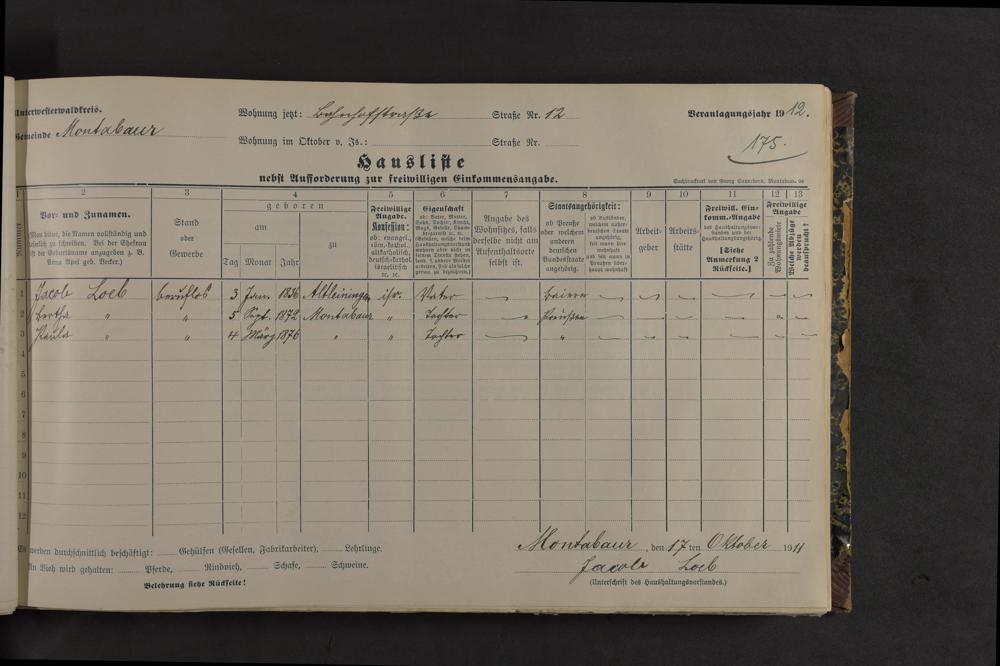 Unterwesterwaldkreis.
Gemeinde Montabaur
Wohnung jetzt: Bahnhofstraße Straße Nr. 12
Veranlagungsjahr 1912.
Wohnung im Oktober v. Js.: Straße Nr.
175.
Hausliste
nebst Aufforderung zur freiwilligen Einkommensangabe.
1 2 3 4 5 6 7 8 9 10 11 12 13
Nummer
Vor- und Zunamen.
Man bittet, die Namen vollständig und
zu schreiben. Bei der Ehefrau
ist der Geburtsname anzugeben z. B.
Anna Apel geb. Becker.)
Stand
oder
Gewerbe
geboren
am
zu
Tag Monat Jahr
Freiwillige
Angabe.
Konfession:
ob: evangel.,
röm.-kathol.,
altkatholisch,
deutsch-kathol.
israelitisch
2c. 2c.
Eigenschaft
ob: Vater, Mutter,
Sohn, Tochter, Knecht,
Magd, Geselle,
Angabe des
Wohnsitzes, falls
derselbe nicht am
Aufenthaltsorte
selbst ist.
Staatsangehörigkeit:
ob Preuße
oder welchem
anderen
deutschen
Bundesstaate
angehörig.
ob Ausländer,
welchem außer-
deutschen Staate
angehörig,
seit wann hier
wohnhaft
und seit wann in
Preußen über-
haupt wohnhaft
Arbeit-
geber
Arbeits-
stätte
Freiwill. Ein-
komm.-Angabe
des Haushaltungsvor-
standes und der
Haushaltungsangehörig.
[Siehe
Anmerkung 2
Rückseite.]
Freiwillige
Angabe
Zu zahlende
Wohnungsmiete
Welche Abzüge
werden
beansprucht?
1 Jacob Loeb berufslos 3 Jan. 1836 Altleiningen isr. Vater — Baiern — — — — —
2 Bertha " " 5 Sept. 1872 Montabaur " Tochter — Preußen — — — " —
3 Paula " " 4 März 1876 " " Tochter — " — — — — —
4
5
6
7
8
9
10
11
12
Es werden durchschnittlich beschäftigt: Gehülfen (Gesellen, Fabrikarbeiter), Lehrlinge.
An Vieh wird gehalten: Pferde, Rindvieh, Schafe, Schweine.
Belehrung siehe Rückseite!
Montabaur, den 17ten Oktober 1911
Jacob Loeb
(Unterschrift des Haushaltungsvorstandes.)